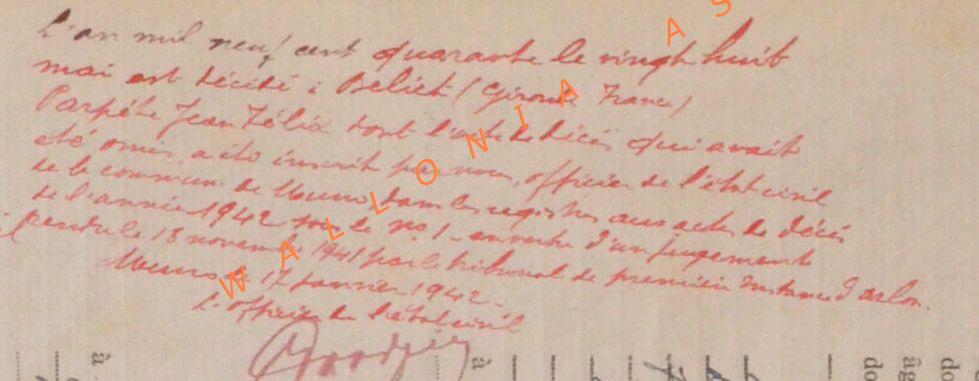 L'an mil neuf cent quarante le vingt huit
mai est décédé à Beliet (Gironde France)
Parpète Jean Félix dont l'acte de décès qui avait
été omis, a été inscrit par nous, officier de l'état civil
de la commune de dans les registres aux actes de décès
de l'année 1942 sous le no 1 - en vertu d'un jugement
rendu le 18 novembre 1941 par le tribunal de première instance d'Arlon.
le 17 janvier 1942.
L'officier de l'état civil
WALLONIA AS
à
à
âg
do
do